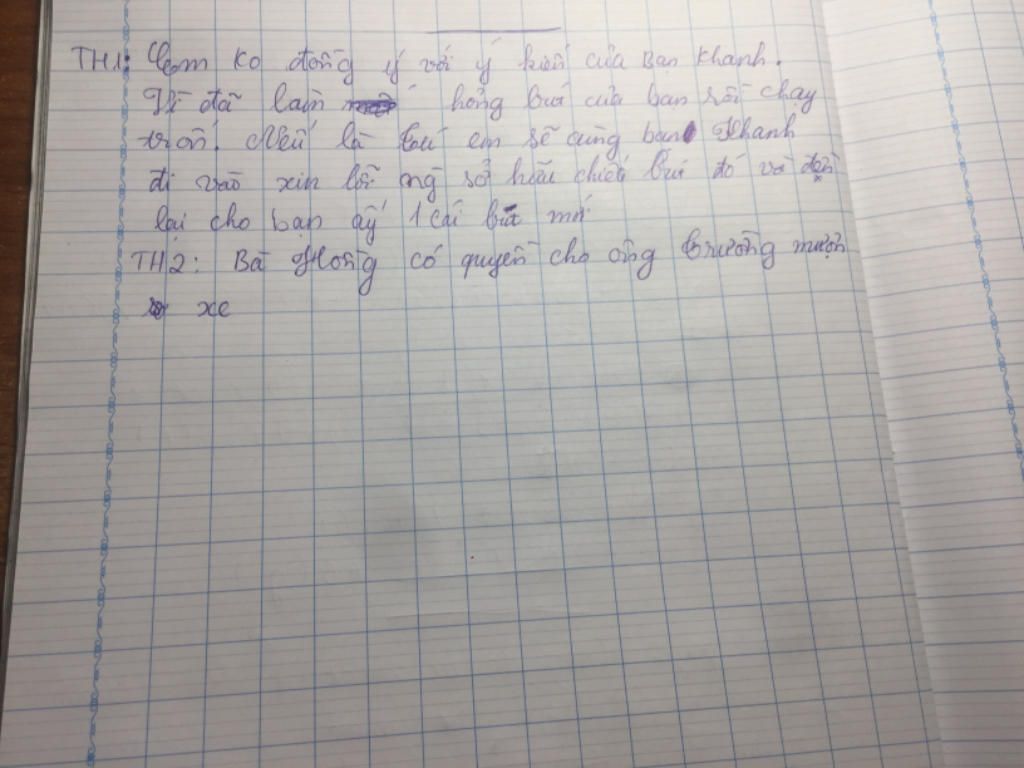 TH1: Em ko đồng ý với ý kiến của Bạn Khanh.
Vì đã làm hỏng bút của bạn rồi chạy
trốn. Nếu là em sẽ cùng bạn Khanh
đi vào xin lỗi ng sở hữu chiếc bút đó và đền
lại cho bạn ấy 1 cái bút mới
TH2: Bà Hồng có quyền cho ông Trường mượn
xe